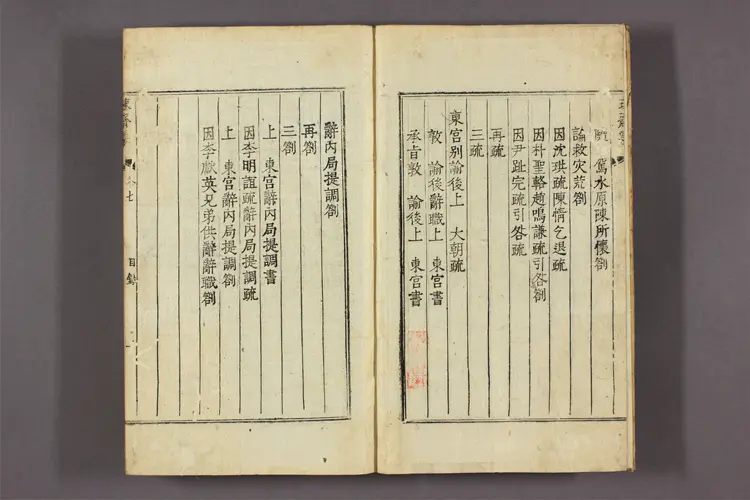 駕水原疎所懷劄
論救灾荒劄
因沈珙疏陳情乞退疏
因朴聖輅趙鳴謙疏引咎劄
因尹趾完疏引咎疏
再疏
三疏
東宮別諭後上 大朝疏
敦 諭後辭職上 東宮書
承旨敦 諭後上 東宮書
辭內局提調劄
再劄
三劄
上 東宮辭內局提調書
因李明誼疏辭內局提調疏
上 東宮辭內局提調劄
因李獻英兄弟供辭辭職劄
七
目錄
一